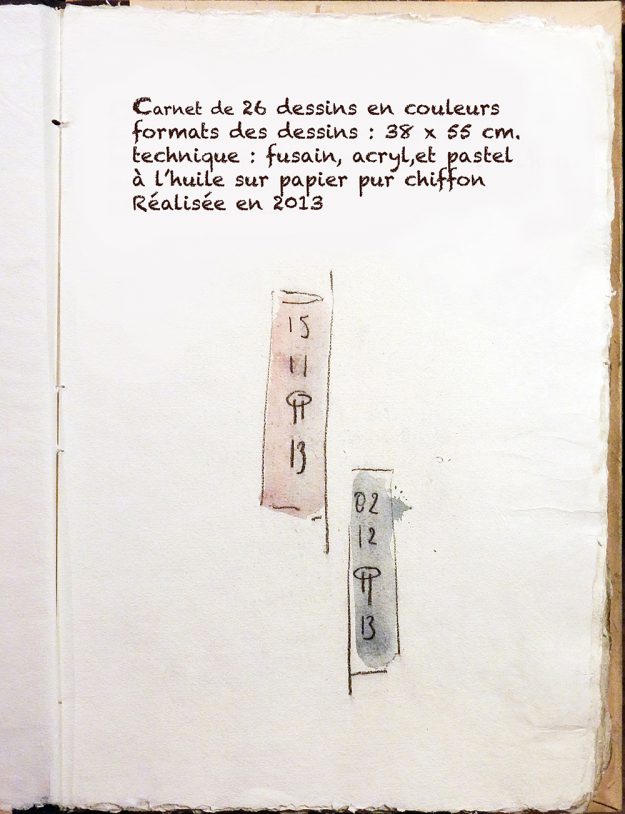 Carnet de 26 dessins en couleurs
formats des dessins : 38 x 55 cm.
technique : fusain, acryl,et pastel
à l'huile sur papier pur chiffon
Réalisée en 2013
15
11
13
02
12
13